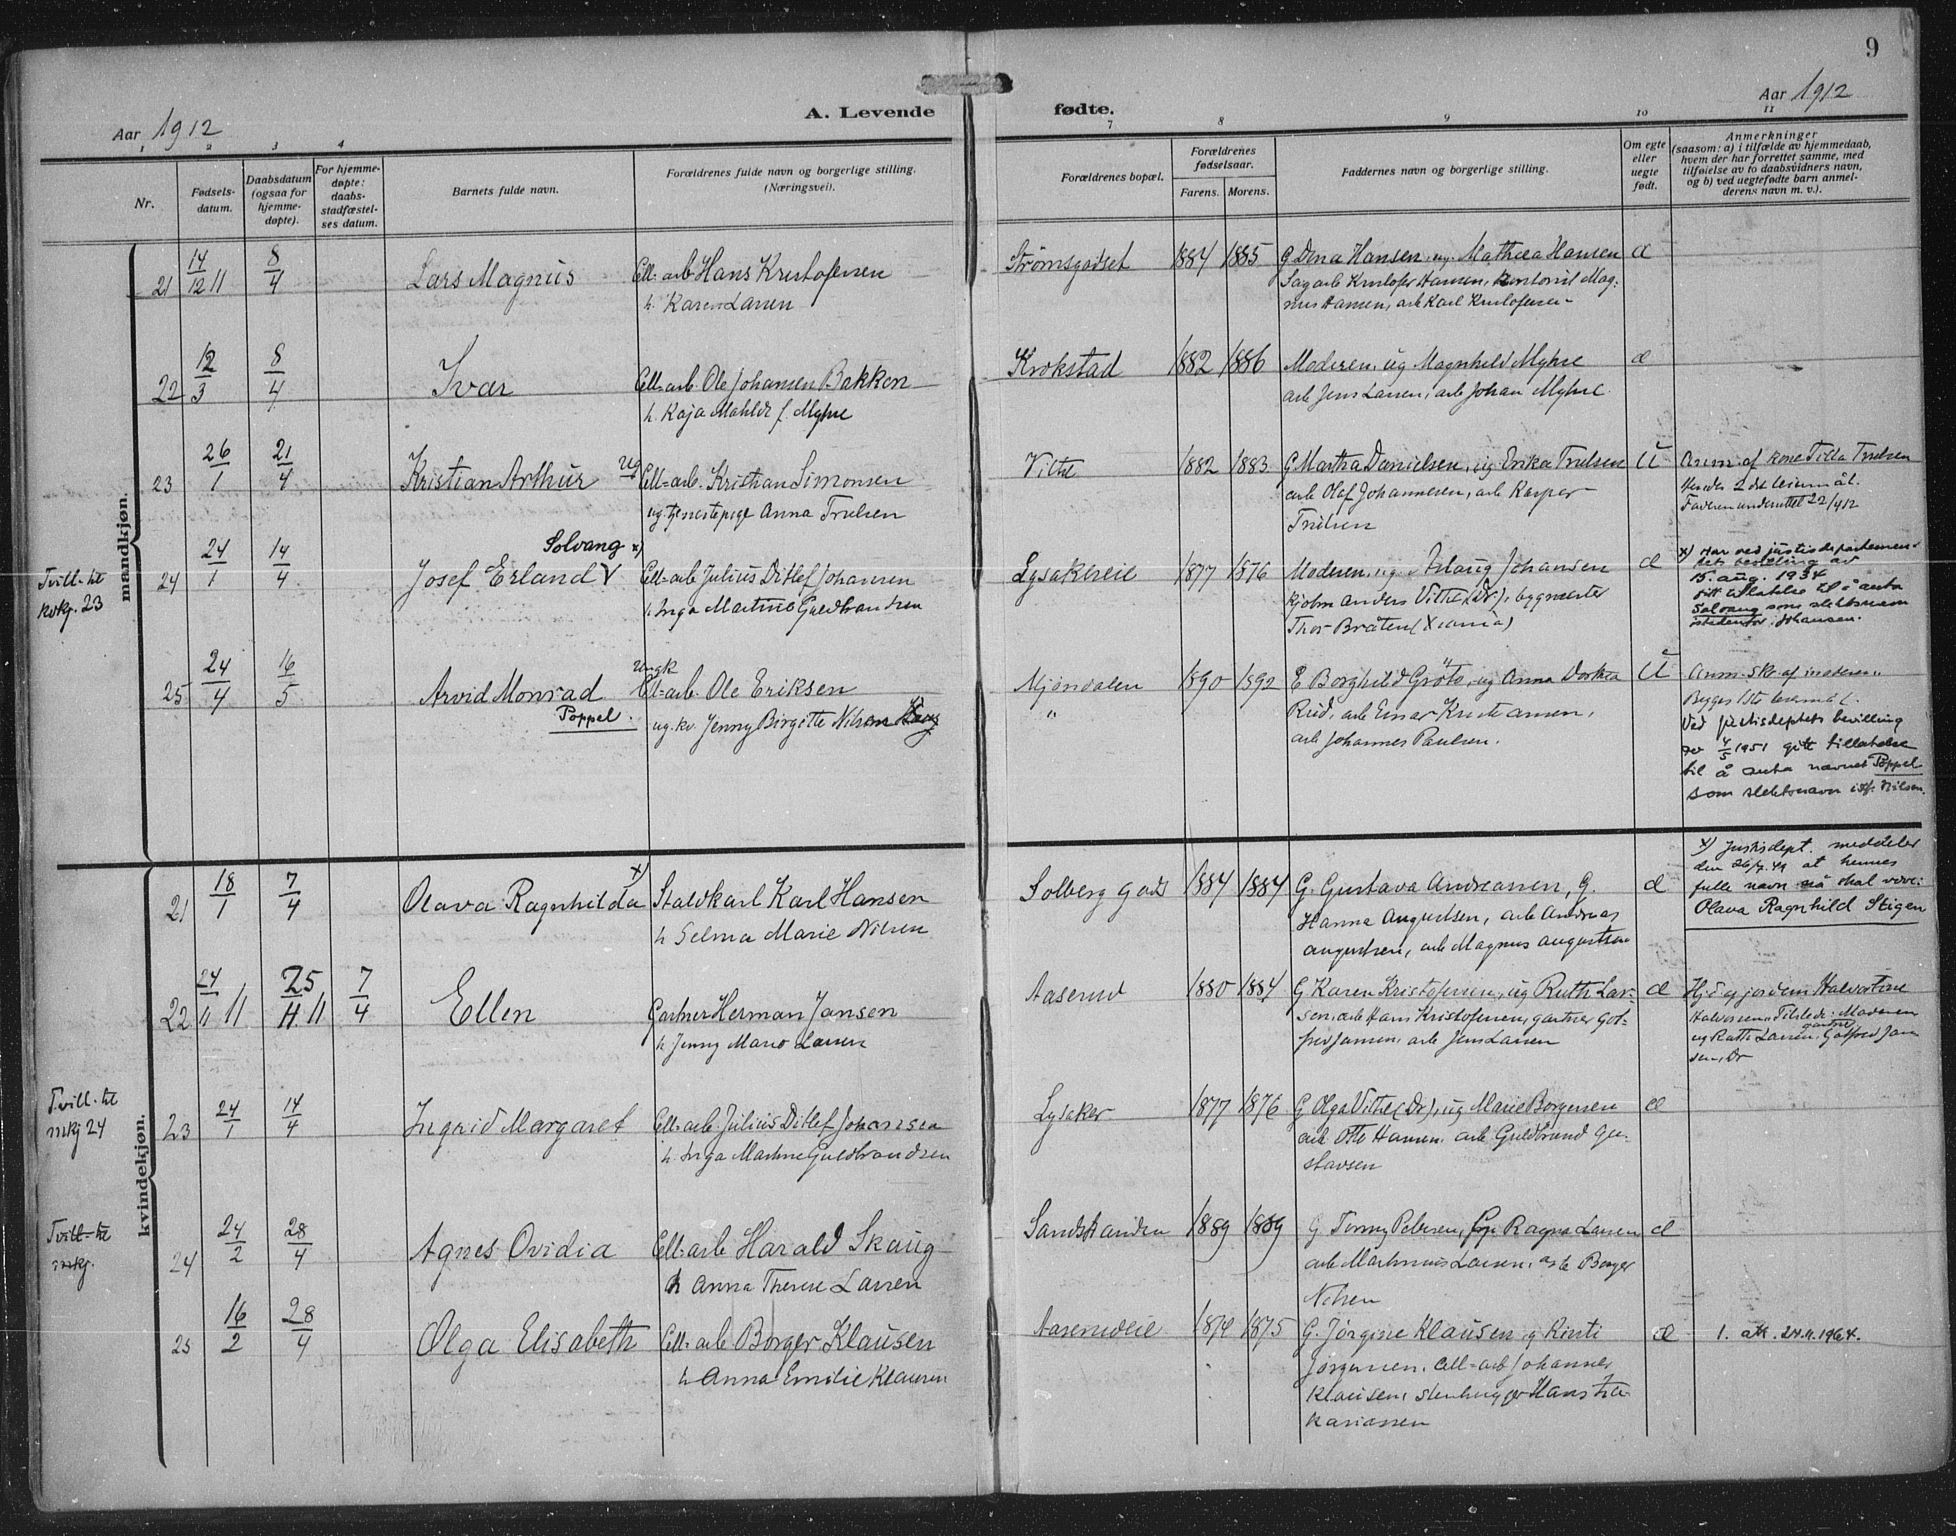 9
Aar 1912
A. Levende
fødte.
Aar 1912
1 2 3 4 7 8 9 10 11
Nr.
Fødsels-
datum.
Daabsdatum
(ogsaa for
hjemme-
døpte).
For hjemme-
døpte:
daabs-
stadfæstel-
ses datum.
Barnets fulde navn.
Forældrenes fulde navn og borgerlige stilling.
(Næringsvei).
Forældrenes bopæl.
Forældrenes
fødselsaar.
Farens. Morens.
Faddernes navn og borgerlige stilling.
Om egte
eller
uegte
født.
Anmerkninger
(saasom: a) i tilfælde av hjemmedaab,
hvem der har forrettet samme, med
tilføielse av to daabsvidners navn,
og b) ved uegtefødte barn anmel-
derens navn m. v.).
mandkjøn.
21 14/12 11 8/4 Lars Magnus Cell-arb Hans Kristofersen Strømsgodset 1884 1885 G Dena Hansen, ug. Mathea Hansen æ
h. Karen Larsen Sagarb Kristofer Hansen, Mag-
nus Hansen, arb Karl Kristofersen
22 12/3 8/4 Ivar Cell-arb Ole Johansen Bakken Krokstad 1882 1886 Moderen, ug Magnhild Myhre æ
h. Kaja Mahlde f. Myhre arb Jens Larsen, arb Johan Myhre.
23 26/1 21/4 Kristian Arthur Ug Cell-arb. Kristian Simonsen Vilhl 1882 1883 G Martha Danielsen, ug Erika Trulsen U Anm. af kone Tilla Trulsen
ug tjenestepige Anna Trulsen arb Olaf Johannesen, arb Kasper Hendes 2det leiermål.
Trulsen Faderen underrettet 22/4 12
Tvill. til
kvkj. 23
24 24/1 14/4 Josef Erland V Solvang x) Cell-arb Julius Ditlef Johansen Lysakereie 1877 1876 Moderen, ug. Aslaug Johansen æ
h. Inga Martine Guldbrandsen kjøbm Anders Vilhl (Dr.), bygmester
Thor Bråten (Xiania)
x) Har ved justisdepartemen-
tets bevilling av
15. aug. 1934
fått tillatelse til å anta
Solvang som slektsnavn
istedenfor Johansen.
25 24/4 16/5 Arvid Monrad Ungk Cell-arb Ole Eriksen Mjøndalen 1890 1892 E Borghild Grøte, ug Anna Dorthea U Anm. skr af moderen
Poppel. ug. kv. Jenny Birgitte Nilsen " Rud, arb Einar Kristiansen,
arb Johannes Paulsen.
Begges 1ste leiermål.
Ved justisdeptets bevilling
av 4/5 1951 gitt tillatelse
til å anta navnet Poppel
som slektsnavn istf. Nilsen.
kvindekjøn.
21 18/1 7/4 Olava Ragnhilda x) Staldkarl Karl Hansen Solberg Gods 1884 1884 G. Gustava Andreassen, G. æ
h Selma Marie Nilsen Hanna Augustsen, arb Andreas
Augustsen, arb Magnus Augustsen
x) Justisdept. meddeler
den 26/7. 41 at hennes
fulle navn nå skal være:
Olava Ragnhild Stigen
22 24/11 11 25/11 11 7/4 Ellen Gartner Herman Jansen Aaserud 1880 1884 G Karen Kristofersen, ug Ruth Lar- æ
h Jenny Marie Larsen sen, arb Hans Kristofersen, gartner Got-
fred Jansen, arb Jens Larsen
Hjd af jordem Halvortine
Halvorsen. Tilstede: Moderen
ug Ruth Larsen, gartner Gotfred Jan
sen, Dr
Tvill. til
mkj 24
23 24/1 14/4 Ingrid Margaret Cell-arb. Julius Ditlef Johansen Lysaker 1877 1876 G Olga Vilhl (Dr), ug Marie Borgersen æ
h. Inga Martine Guldbrandsen arb Otto Hansen, arb Guldbrand Gu-
stavsen
Tvill. til
mkj.
24 24/2 28/4 Agnes Ovidia Cell-arb Harald Skaug Sandstranden 1889 1889 G. Tomy Petersen, Ragna Larsen æ
h Anna Therese Larsen arb Martinius Larsen, arb Borger
Nilsen
25 16/2 28/4 Olga Elisabeth Cell-arb Borger Klausen Aaserudeie 1876 1875 G. Jørgine Klausen, g Kirsti æ 1. att. 24.11.1964.
h Anna Emilie Klausen Jørgensen, cell-arb Johannes
Klausen, stenhugger Hans Za-
kariassen